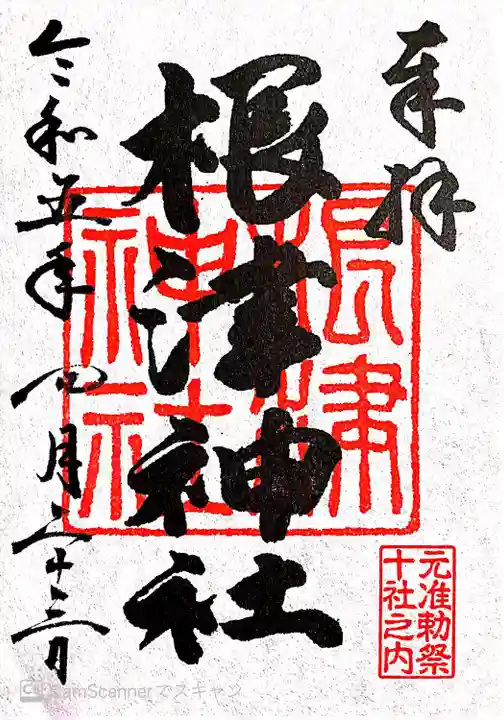 奉拝
根津神社
根津神社
元准勅祭
十社之内
令和五年四月二十三日
CS CamScannerでスキャン